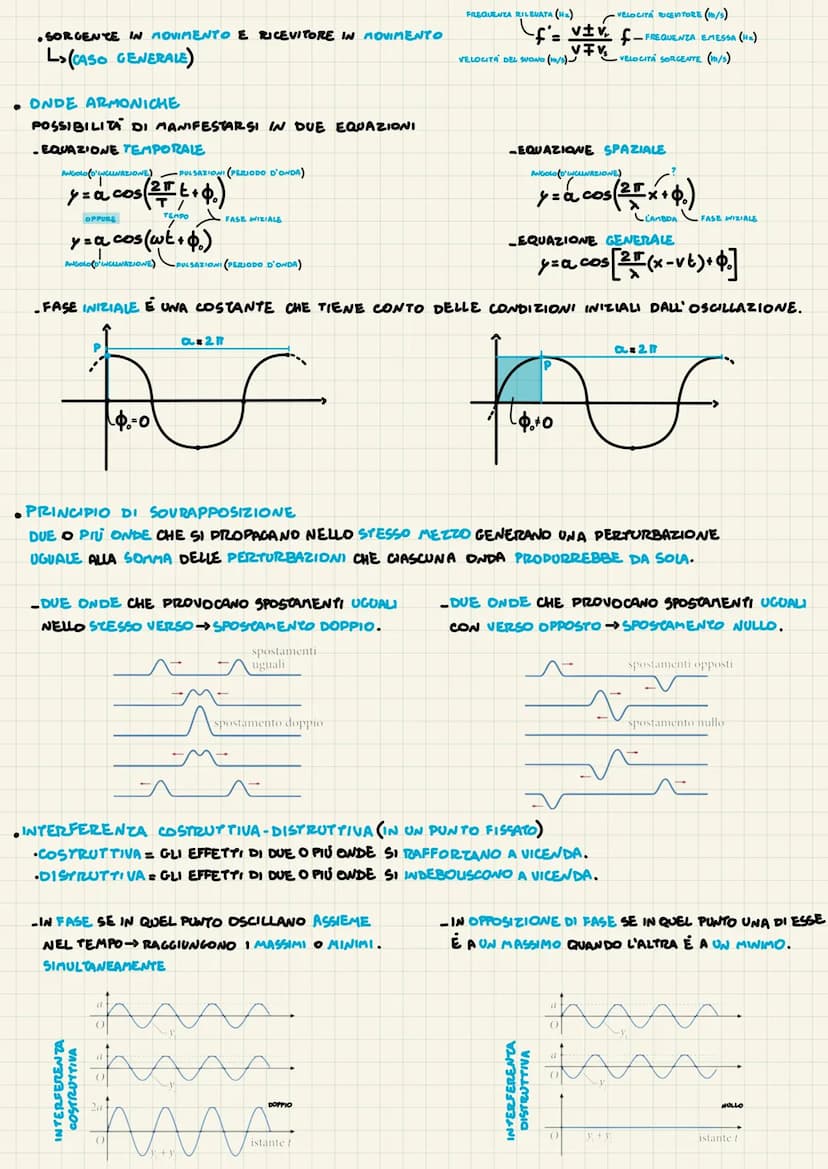 FREQUENZA RILEVATA (Hz)
VELOCITÁ RICEVITORE (m/s)
• SORGENTE IN MOVIMENTO E RICEVITORE IN MOVIMENTO
f' = (v ± vᵣ)/(v ∓ vₛ) f — FREQUENZA EMESSA (Hz)
↳ (CASO GENERALE)
VELOCITÁ DEL SUONO (m/s)
VELOCITÁ SORGENTE (m/s)
• ONDE ARMONICHE
POSSIBILITÁ DI MANIFESTARSI IN DUE EQUAZIONI
- EQUAZIONE TEMPORALE
ANGOLO (D'INCLINAZIONE)
PULSAZIONI (PERIODO D'ONDA)
y = a cos(2π/T t + ϕ₀)
OPPURE
TEMPO
FASE INIZIALE
y = a cos(ωt + ϕ₀)
ANGOLO (D'INCLINAZIONE)
PULSAZIONI (PERIODO D'ONDA)
- EQUAZIONE SPAZIALE
ANGOLO (D'INCLINAZIONE)
?
y = a cos(2π/λ x + ϕ₀)
LAMBDA
FASE INIZIALE
- EQUAZIONE GENERALE
y = a cos[2π/λ (x - vt) + ϕ₀]
- FASE INIZIALE É UNA COSTANTE CHE TIENE CONTO DELLE CONDIZIONI INIZIALI DALL'OSCILLAZIONE.
P
a = 2π
ϕ₀ = 0
a = 2π
P
ϕ₀ ≠ 0
• PRINCIPIO DI SOVRAPPOSIZIONE
DUE O PIÙ ONDE CHE SI PROPAGANO NELLO STESSO MEZZO GENERANO UNA PERTURBAZIONE
UGUALE ALLA SOMMA DELLE PERTURBAZIONI CHE CIASCUNA ONDA PRODURREBBE DA SOLA.
- DUE ONDE CHE PROVOCANO SPOSTAMENTI UGUALI
NELLO STESSO VERSO → SPOSTAMENTO DOPPIO.
spostamenti
uguali
spostamento doppio
- DUE ONDE CHE PROVOCANO SPOSTAMENTI UGUALI
CON VERSO OPPOSTO → SPOSTAMENTO NULLO.
spostamenti opposti
spostamento nullo
• INTERFERENZA COSTRUTTIVA - DISTRUTTIVA (IN UN PUNTO FISSATO)
• COSTRUTTIVA = GLI EFFETTI DI DUE O PIÙ ONDE SI RAFFORZANO A VICENDA.
• DISTRUTTIVA = GLI EFFETTI DI DUE O PIÙ ONDE SI INDEBOLISCONO A VICENDA.
- IN FASE SE IN QUEL PUNTO OSCILLANO ASSIEME
NEL TEMPO → RAGGIUNGONO I MASSIMI O MINIMI.
SIMULTANEAMENTE
- IN OPPOSIZIONE DI FASE SE IN QUEL PUNTO UNA DI ESSE
É A UN MASSIMO QUANDO L'ALTRA É A UN MINIMO.
INTERFERENZA
COSTRUTTIVA
a
O
a
O
2a
DOPPIO
O
istante t
INTERFERENZA
DISTRUTTIVA
a
O
a
O
NULLO
O
istante t